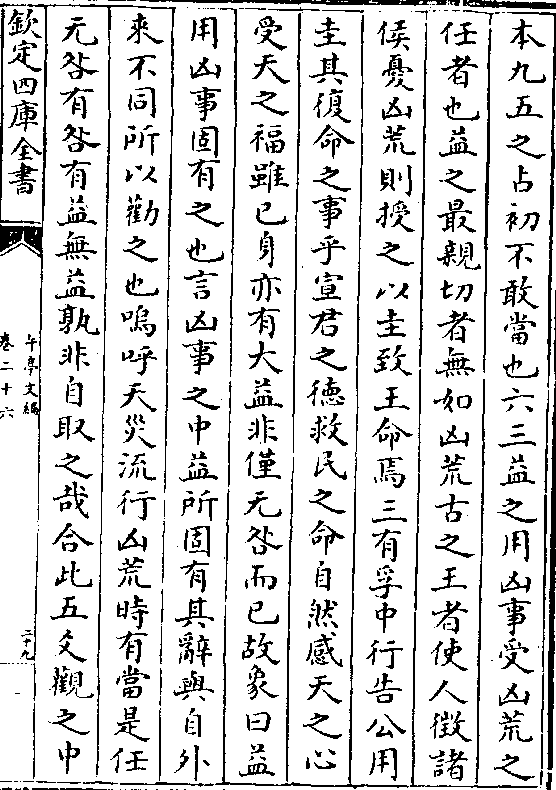 本九五之占初不敢當也六三益之用凶事受凶荒之
任者也益之最親切者無如凶荒古之王者使人徴諸
侯憂凶荒則授之以圭致王命焉三有孚中行告公用
圭其復命之事乎宣君之德救民之命自然感天之心
受天之福雖已身亦有大益非僅无咎而已故象曰益
用凶事固有之也言凶事之中益所固有其辭與自外
來不同所以勸之也嗚呼天災流行凶荒時有當是任
无咎有咎有益無益孰非自取之哉合此五爻觀之中
欽定四庫全書
午亭文編
卷二十六
二十九